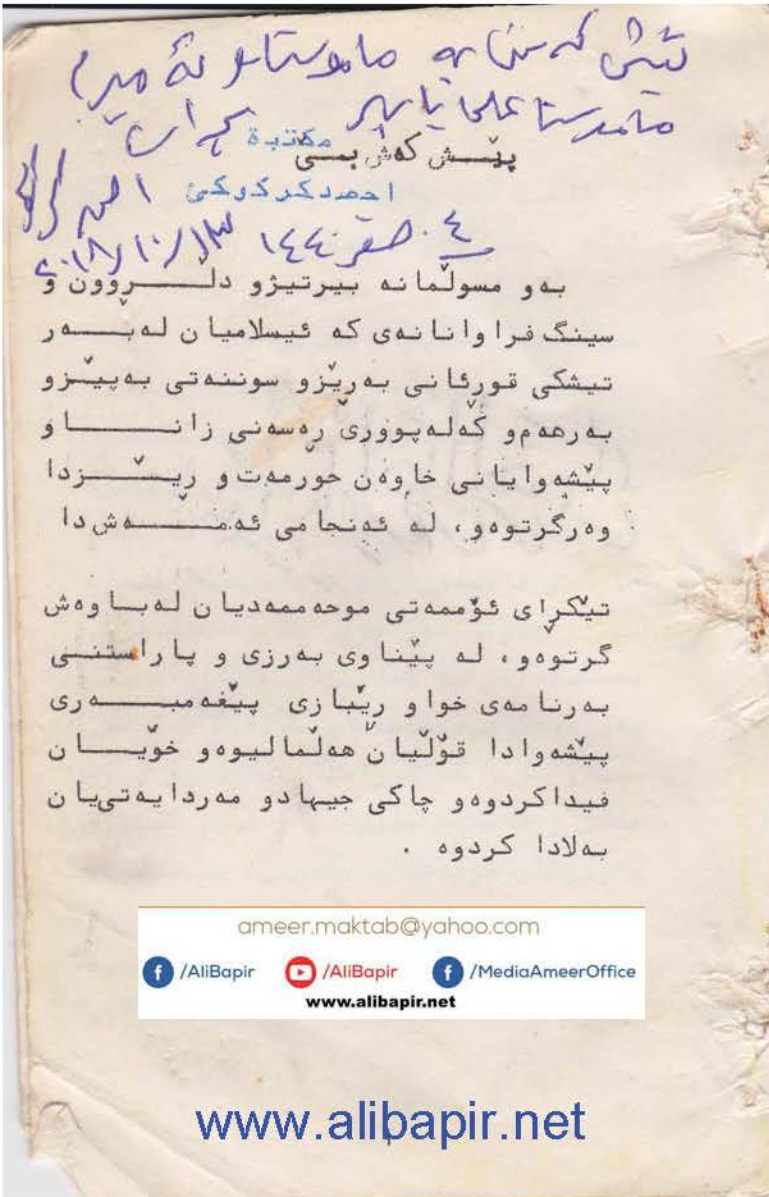 ماموستا
ماموستا علی باپیر
مکتبة
پێش کەش بێ
احمد کرکوکی
٤ صفر ١٤٤٠ ٢٠١٨/١٠/١٣
بەو مسوڵمانە بیرتیژو دڵــــڕوون و
سینگ فراوانانەی کە ئیسلامیان لەبــــەر
تیشکی قورئانی بەرێزو سوننەتی بەپێــزو
بەرهەمو کەلەپووری ڕەسەنی زانـــــاو
پێشەوایانی خاوەن حورمەت و رێـــزدا
وەرگرتوەو، لە ئەنجامی ئەمـــــەش دا
تێکڕای ئۆممەتی موحەممەدیان لەبـاوەش
گرتوەو، لە پێناوی بەرزی و پاراستنــی
بەرنامەی خواو رێبازی پێغەمبــــەری
پێشەوادا قۆڵیان هەڵمالیوەو خۆیــــان
فیداکردوەو چاکی جیهادو مەردایەتی‌یان
بەلادا کردوە .
ameer.maktab@yahoo.com
/AliBapir /AliBapir /MediaAmeerOffice
www.alibapir.net
www.alibapir.net